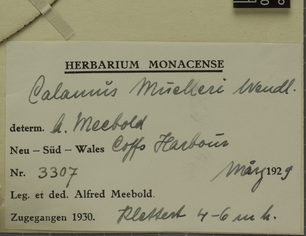 HERBARIUM MONACENSE
Calamus Muelleri Wendl.
determ. A. Meebold
Neu – Süd – Wales Coffs Harbour
Nr. 3307 März 1929
Leg. et ded. Alfred Meebold.
Zugegangen 1930. Klettert 4-6 m h.